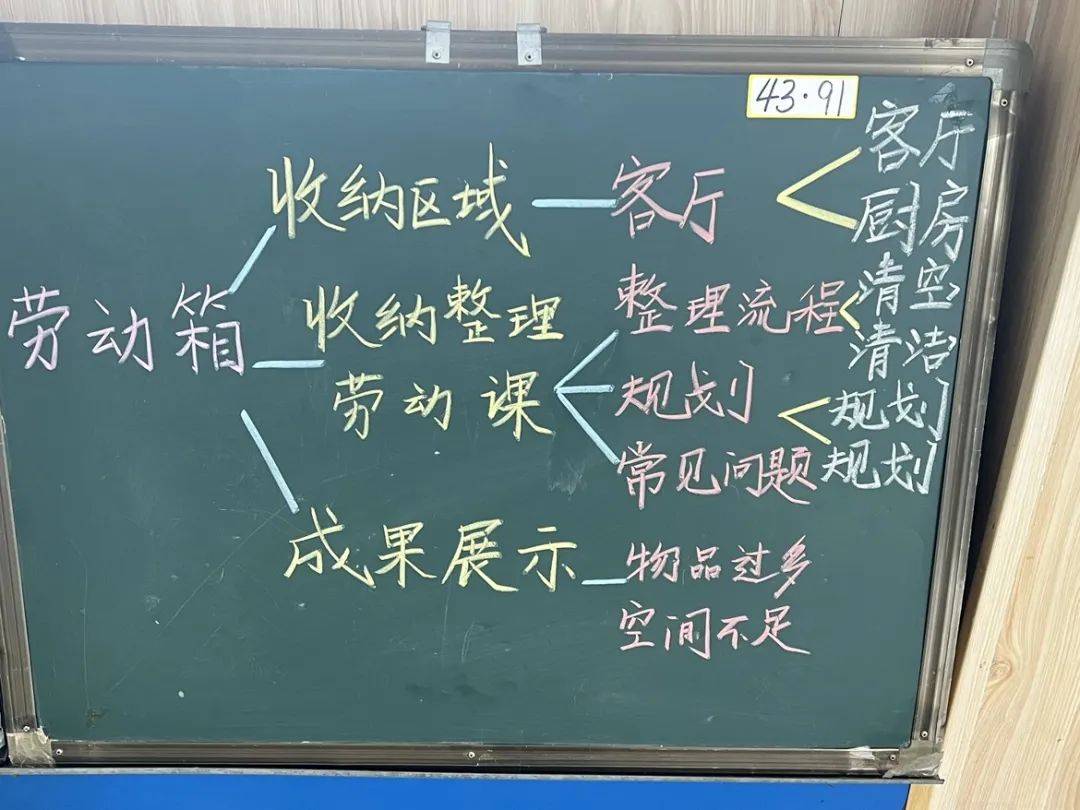 43·91
客厅
厨房
收纳区域
客厅
劳动箱
收纳整理
劳动课
整理流程
清空
清洁
规划
规划
规划
常见问题
成果展示
物品过多
空间不足